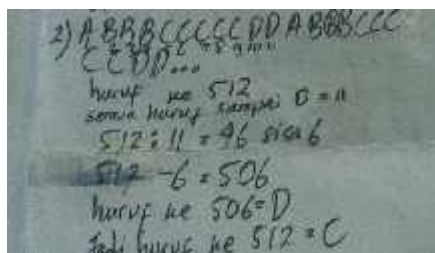 2) A BBB CCCCC DD A BBB CCC
CC DD...
huruf ke 512
semua huruf sampai D = 11
512 : 11 = 46 sisa 6
512 - 6 = 506
huruf ke 506 = D
Jadi huruf ke 512 = C